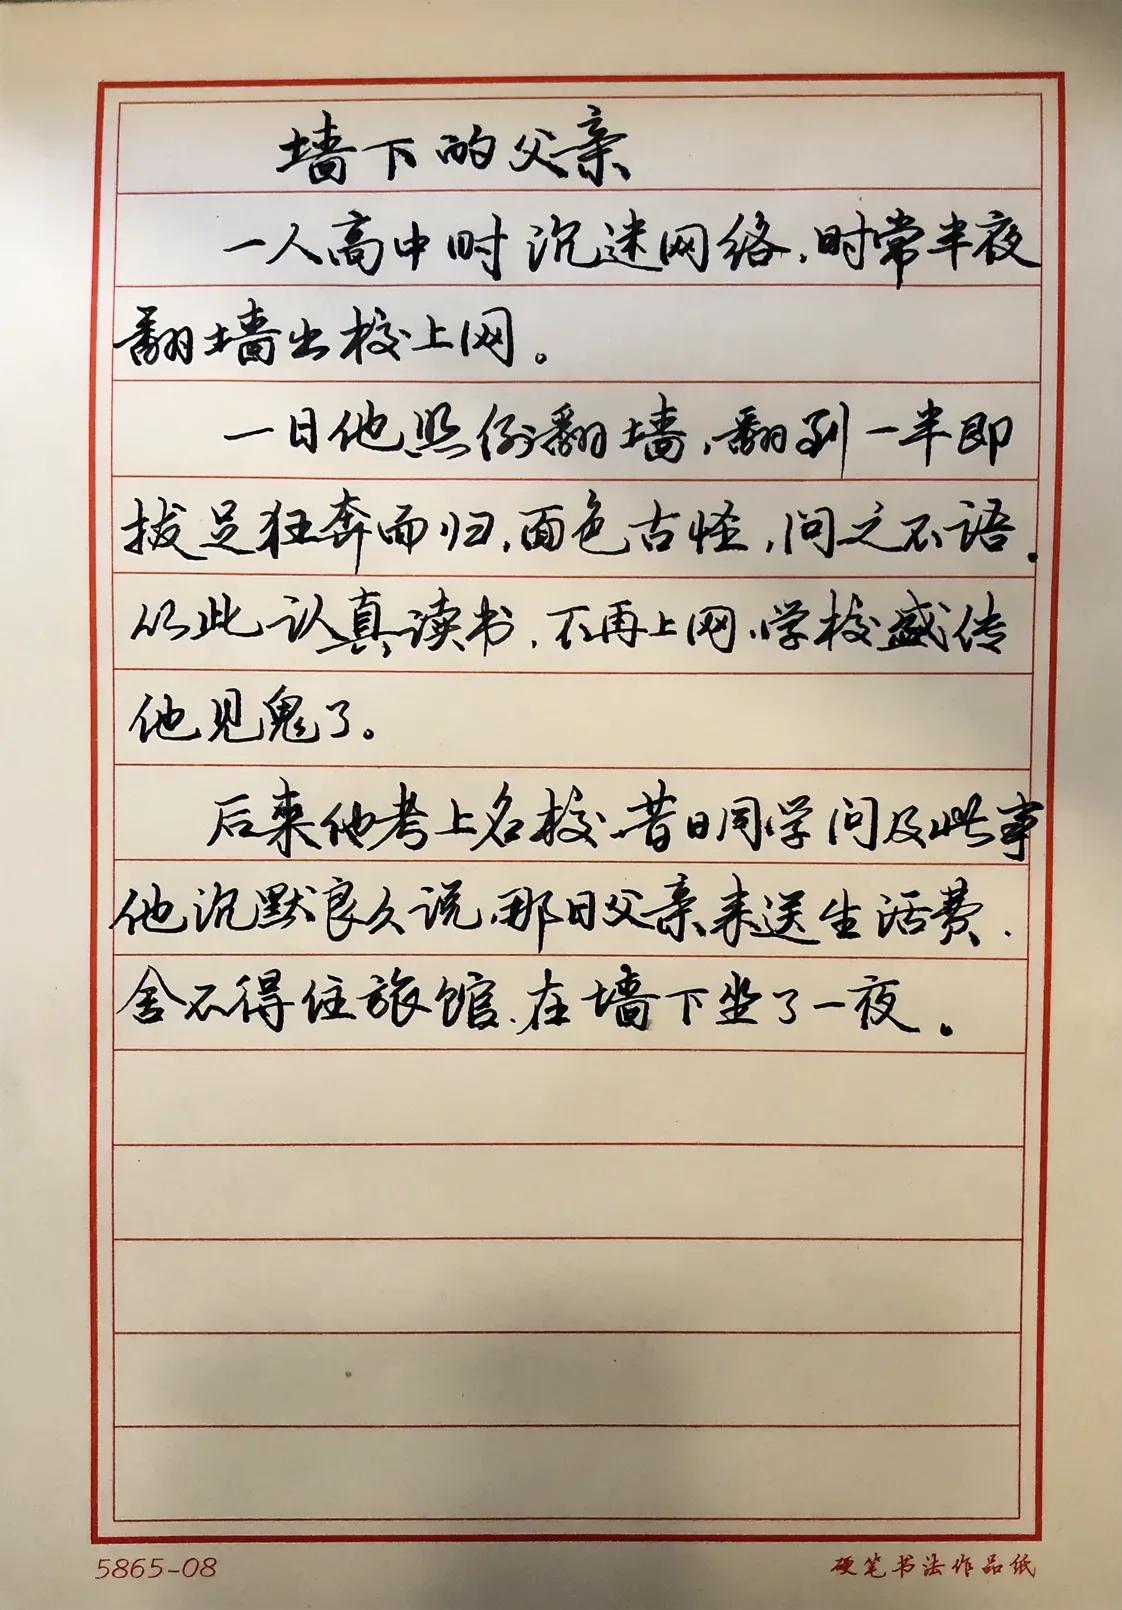 墙下的父亲
一人高中时沉迷网络,时常半夜
翻墙出校上网。
一日他照例翻墙,翻到一半即
拔足狂奔而归,面色古怪,问之不语.
从此认真读书,不再上网,学校盛传
他见鬼了。
后来他考上名校,昔日同学问及此事
他沉默良久说,那日父亲来送生活费.
舍不得住旅馆,在墙下坐了一夜。
5865-08
硬笔书法作品纸